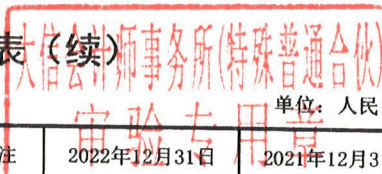 表（续）
大信会计师事务所(特殊普通合伙)
审验专用章
单位：人民
注 2022年12月31日 2021年12月3